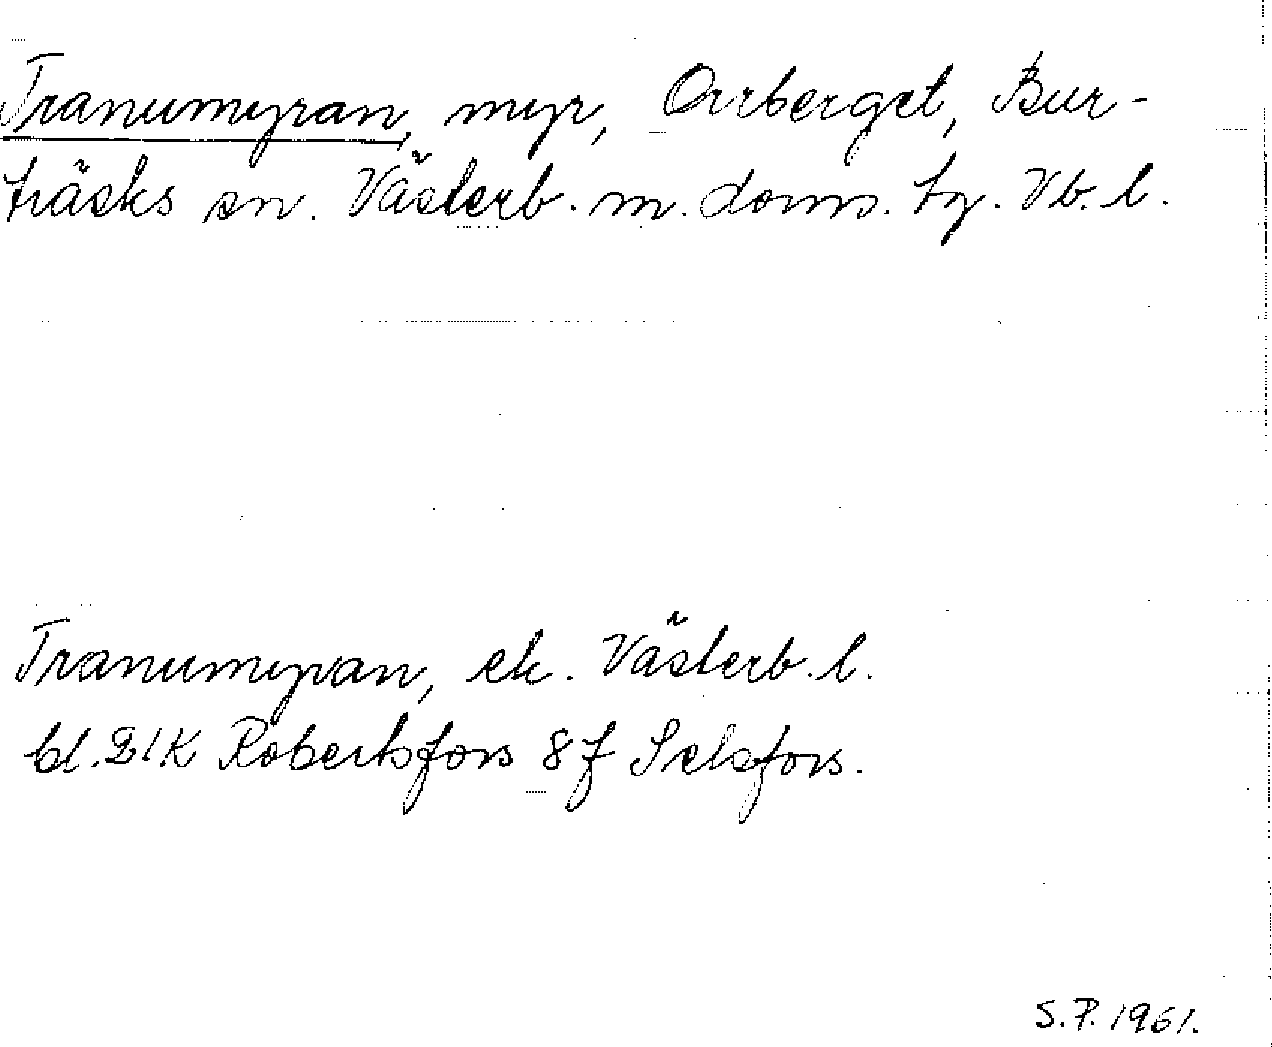 Tranumyran, myr, Orrberget, Bur-
träsks sn. Västerb. m. doms. tg. Vb. l.
Tranumyran, ek. Västerb. l.
bl. 21K Robertsfors 8f Selsfors.
S.P. 1961.